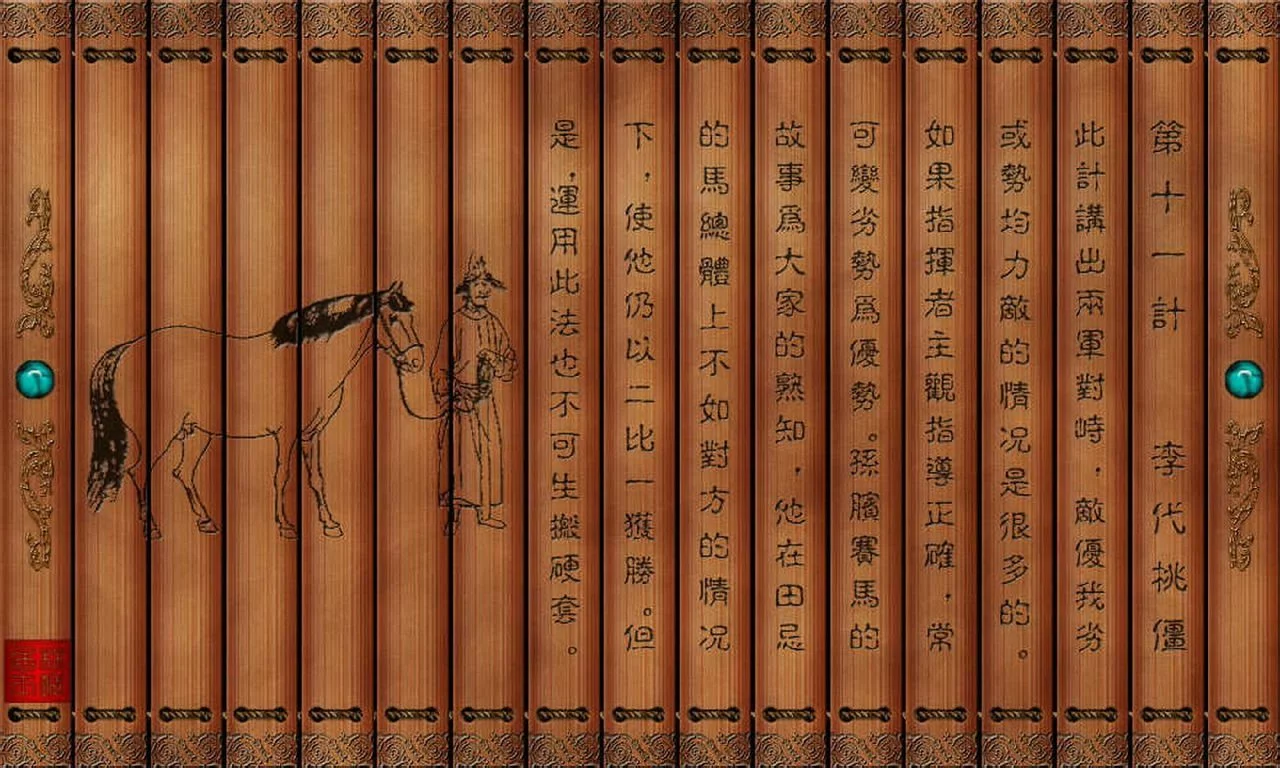 第十一計 李代桃僵
此計講出兩軍對峙，敵優我劣
或勢均力敵的情况是很多的。
如果指揮者主觀指導正確，常
可變劣勢爲優勢。孫臏賽馬的
故事爲大家的熟知，他在田忌
的馬總體上不如對方的情况
下，使他仍以二比一獲勝。但
是，運用此法也不可生搬硬套。